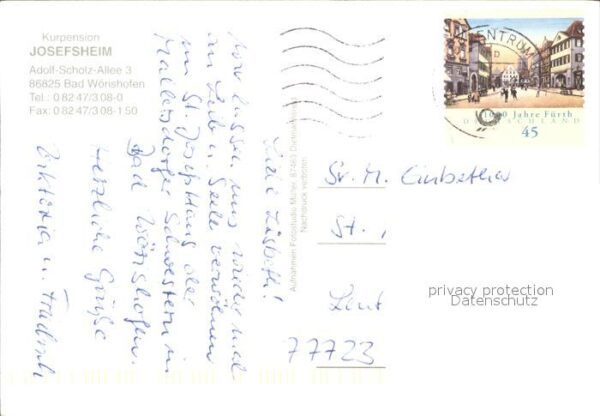 Kurpension
JOSEFSHEIM
Adolf-Scholz-Allee 3
86825 Bad Wörishofen
Tel.: 0 82 47/3 08-0
Fax: 0 82 47/3 08-1 50
Liebe Lisbeth!
Wir lassen uns wieder mal
an Leib u. Seele verwöhnen
im St. Josefshaus der
Mallersdorfer Schwestern in
Bad Wörishofen.
Herzliche Grüße
Viktoria u.
Aufnahmen Fotostudio Müller, 87463 Dietmannsried
Nachdruck verboten
ZENTRUM
1000 Jahre Fürth
DEUTSCHLAND
45
Sr. M.
St.
77723
privacy protection
Datenschutz